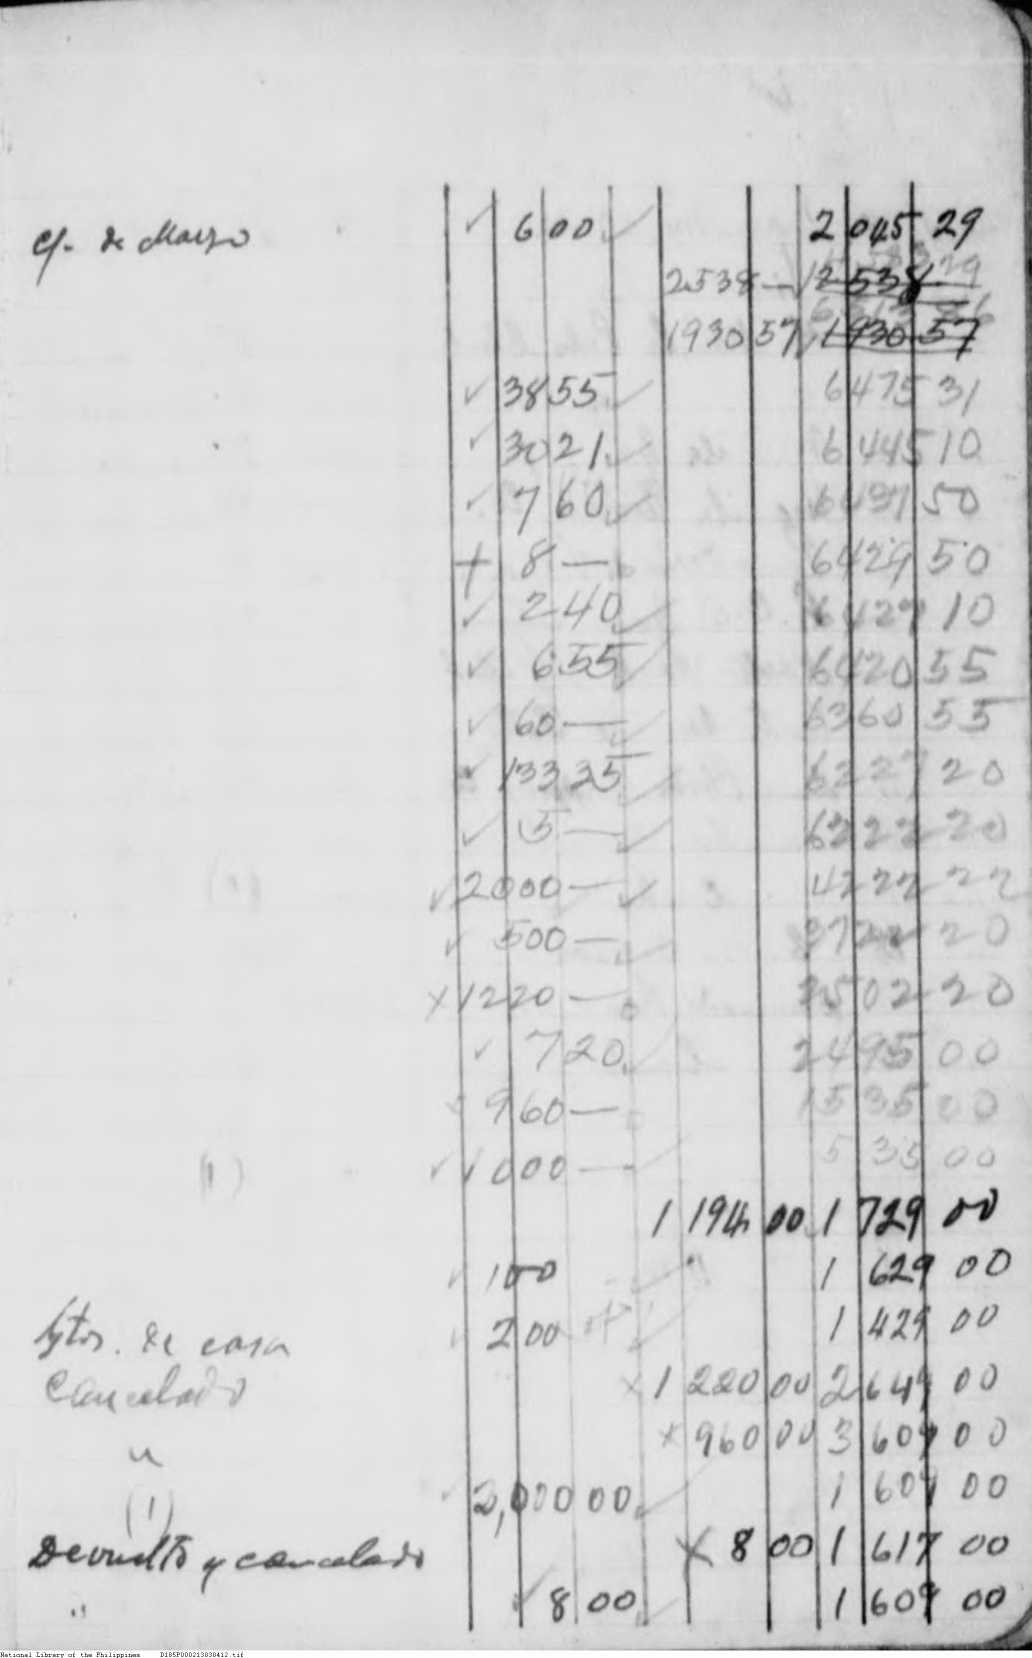 cf. de Marzo 6 00 2 045 29
2538 — 2 538
1930 57 1 930 57
38 55 6475 31
30 21 6445 10
7 60 6437 50
8 — 6429 50
2 40 6427 10
6 55 6420 55
60 — 6360 55
133 35 6227 20
5 — 6222 20
2000 — 4222 22
500 — 3722 20
1220 — 2502 20
7 20 2495 00
960 — 1535 00
1000 — 535 00
1 194 00 1 729 00
100 1 629 00
de casa 200 1 429 00
Cancelado 1 220 00 2 649 00
" 960 00 3 609 00
(1) 2,000 00 1 609 00
Devuelto y cancelado 8 00 1 617 00
" 8 00 1 609 00
National Library of the Philippines